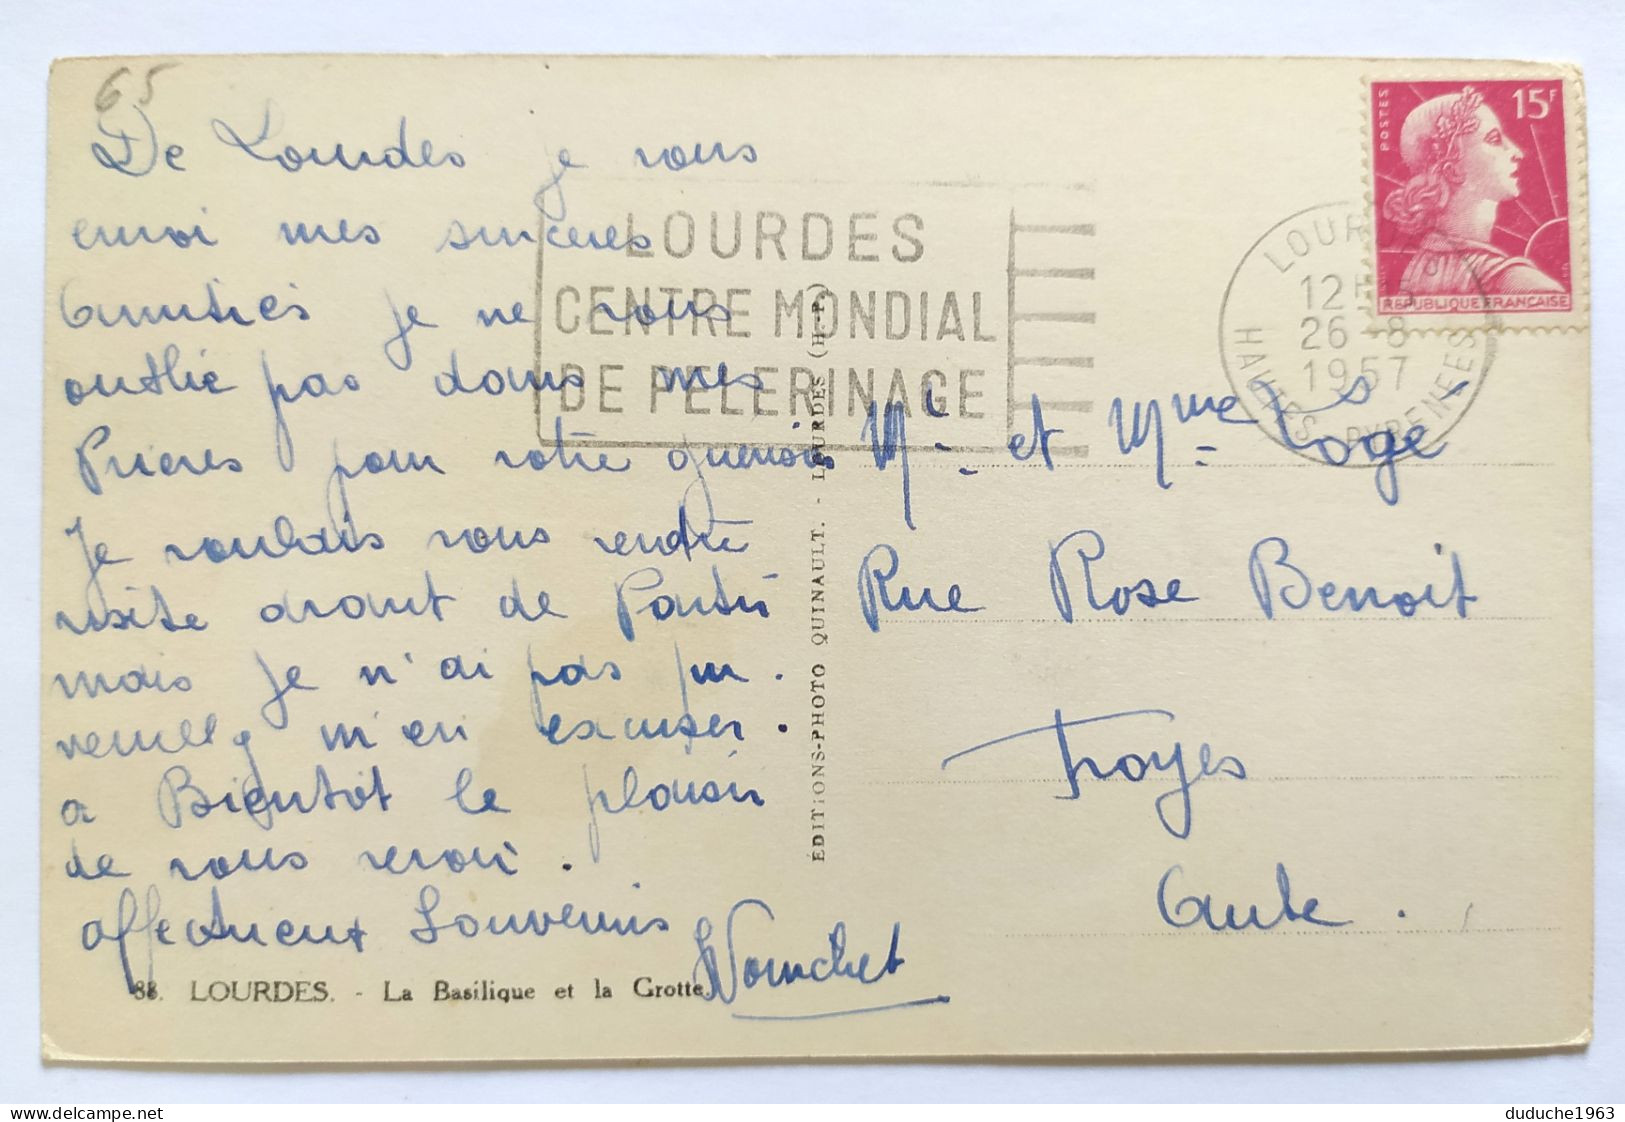 65
De Lourdes je vous
envoi mes sinceres
Amitiés je ne vous
oublie pas dans mes
Prieres pour votre guerison
Je voulais vous rendre
visite avant de Partir
mais je n'ai pas pu.
m'en excuser.
a Bientot le plaisir
de vous revoir.
affectueux Souvenirs
88. LOURDES. - La Basilique et la Grotte.
LOURDES
CENTRE MONDIAL
DE PELERINAGE
ÉDITIONS-PHOTO QUINAULT. - LOURDES (H.-P.)
POSTES
15F
REPUBLIQUE FRANÇAISE
LOURDES
12H
26-8
1957
HAUTES PYRENEES
Mr. et Mme Loge
Rue Rose Benoit
Troyes
Aube.
duduche1963